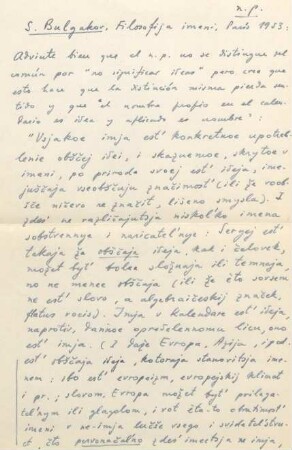 n.p.
S. Bulgakov, Filosofija imeni, París 1953:
Advierte bien que el n.p. no se distingue del
común por "no significar idea" pero cree que
esto hace que la distinción misma pierda sen-
tido y que "el nombre propio en el calen-
dario es idea y aplicado es nombre":
"Vsjakoe imja est' konkretnoe upotreb-
lenie obščej idei, i skazuemoe, skrytoe v
imeni, po prirode svoej est' ideja, ime-
juščaja vseobščuju značimost' (ili že voob-
šče ničego ne značit, lišeno smysla). I
zdes' ne različajutsja niskol'ko imena
sobstvennye i naricatel'nye: Sergej est'
takaja že obščaja ideja, kak i čelovek,
možet byt' bolee složnaja ili temnaja,
no ne menee obščaja (ili že èto sovsem
ne est' slovo, a algebraičeskij značek,
flatus vocis). Imja v kalendare est' ideja,
naprotiv, dannoe opredelennomu licu, ono
est' imja. (I daže Evropa, Azija, i pod.
est' obščaja ideja, kotoraja stanovitsja ime-
nem: ibo est' evropeizm, evropejskij klimat
i pr.; slovom, Evropa možet byt' prilaga-
tel'nym ili glagolom, i vot èta-to obratimost'
imeni v ne-imja lučše vsego i svidetel'stvu-
et, čto pervonačalno zdes' imeetsja ne imja,